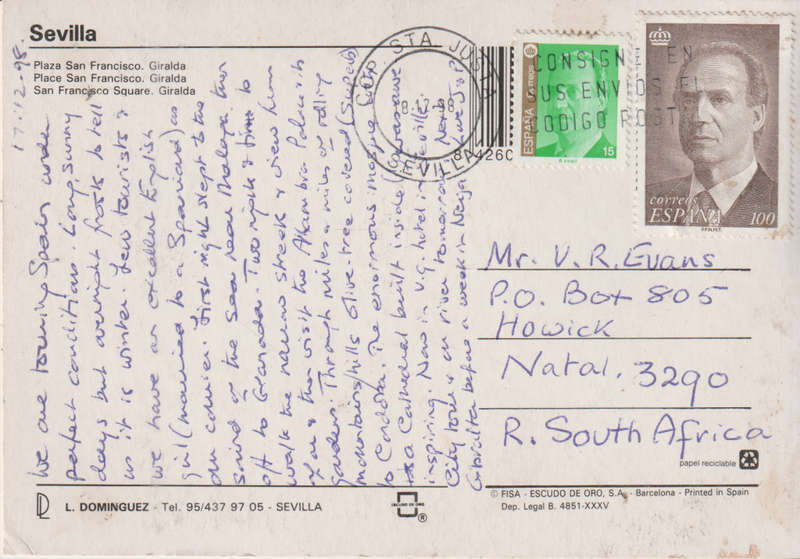 Sevilla
Plaza San Francisco. Giralda
Place San Francisco. Giralda
San Francisco Square. Giralda
17.12.98.
We are touring Spain under
perfect conditions. Long sunny
days but overnight frosts to tell
us it is winter. Few tourists &
we have an excellent English
girl (married to a Spaniard) as
our courier. First night slept to the
sound of the sea near Malaga then
off to Granada. Two nights & time to
walk the narrow streets & view from
& then visit the Alhambra Palace & its
gardens. Through miles & miles of rolling
mountains/hills olive-tree covered (superb)
to Cordoba. The enormous mosque with
a Cathedral built inside was awe
inspiring. Now in v.g. hotel in Seville.
City tour & on river tomorrow. Next
Gibraltar before a week in Nerja
COP. STA JUSTA
18-12-98
SEVILLA
CONSIGNE EN
SUS ENVIOS EL
CODIGO POSTAL
ESPAÑA
correos
15
correos
ESPAÑA
100
Mr. V. R. Evans
P.O. Box 805
Howick
Natal. 3290
R. South Africa
papel reciclable
L. DOMINGUEZ - Tel. 95/437 97 05 - SEVILLA
ESCUDO DE ORO
®
© FISA - ESCUDO DE ORO, S.A. - Barcelona - Printed in Spain
Dep. Legal B. 4851-XXXV